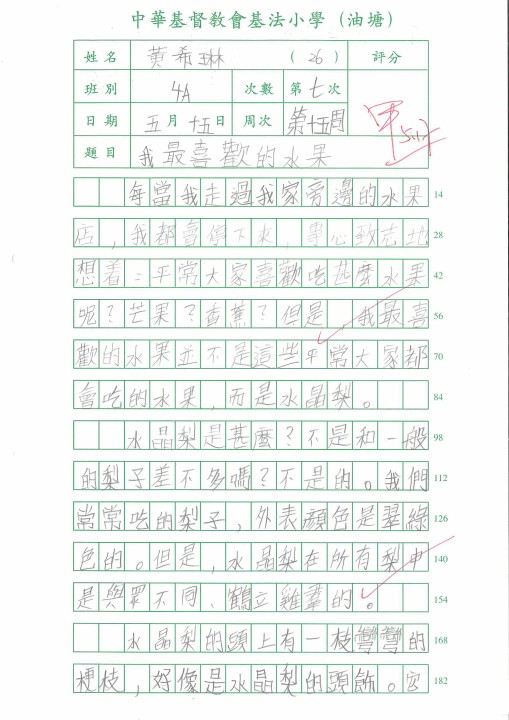 中華基督教會基法小學（油塘）
姓名 黃希琳 （26） 評分
班別 4A 次數 第七次
日期 五月十五日 周次 第十五周
題目 我最喜歡的水果
每當我走過我家旁邊的水果 14
店，我都會停下來，專心致志地 28
想着：平常大家喜歡吃甚麼水果 42
呢？芒果？香蕉？但是，我最喜 56
歡的水果並不是這些平常大家都 70
會吃的水果，而是水晶梨。 84
水晶梨是甚麼？不是和一般 98
的梨子差不多嗎？不是的。我們 112
常常吃的梨子，外表顏色是翠綠 126
色的。但是，水晶梨在所有梨中 140
是與眾不同、鶴立雞羣的。 154
水晶梨的頭上有一枝彎彎的 168
梗枝，好像是水晶梨的頭飾。它 182